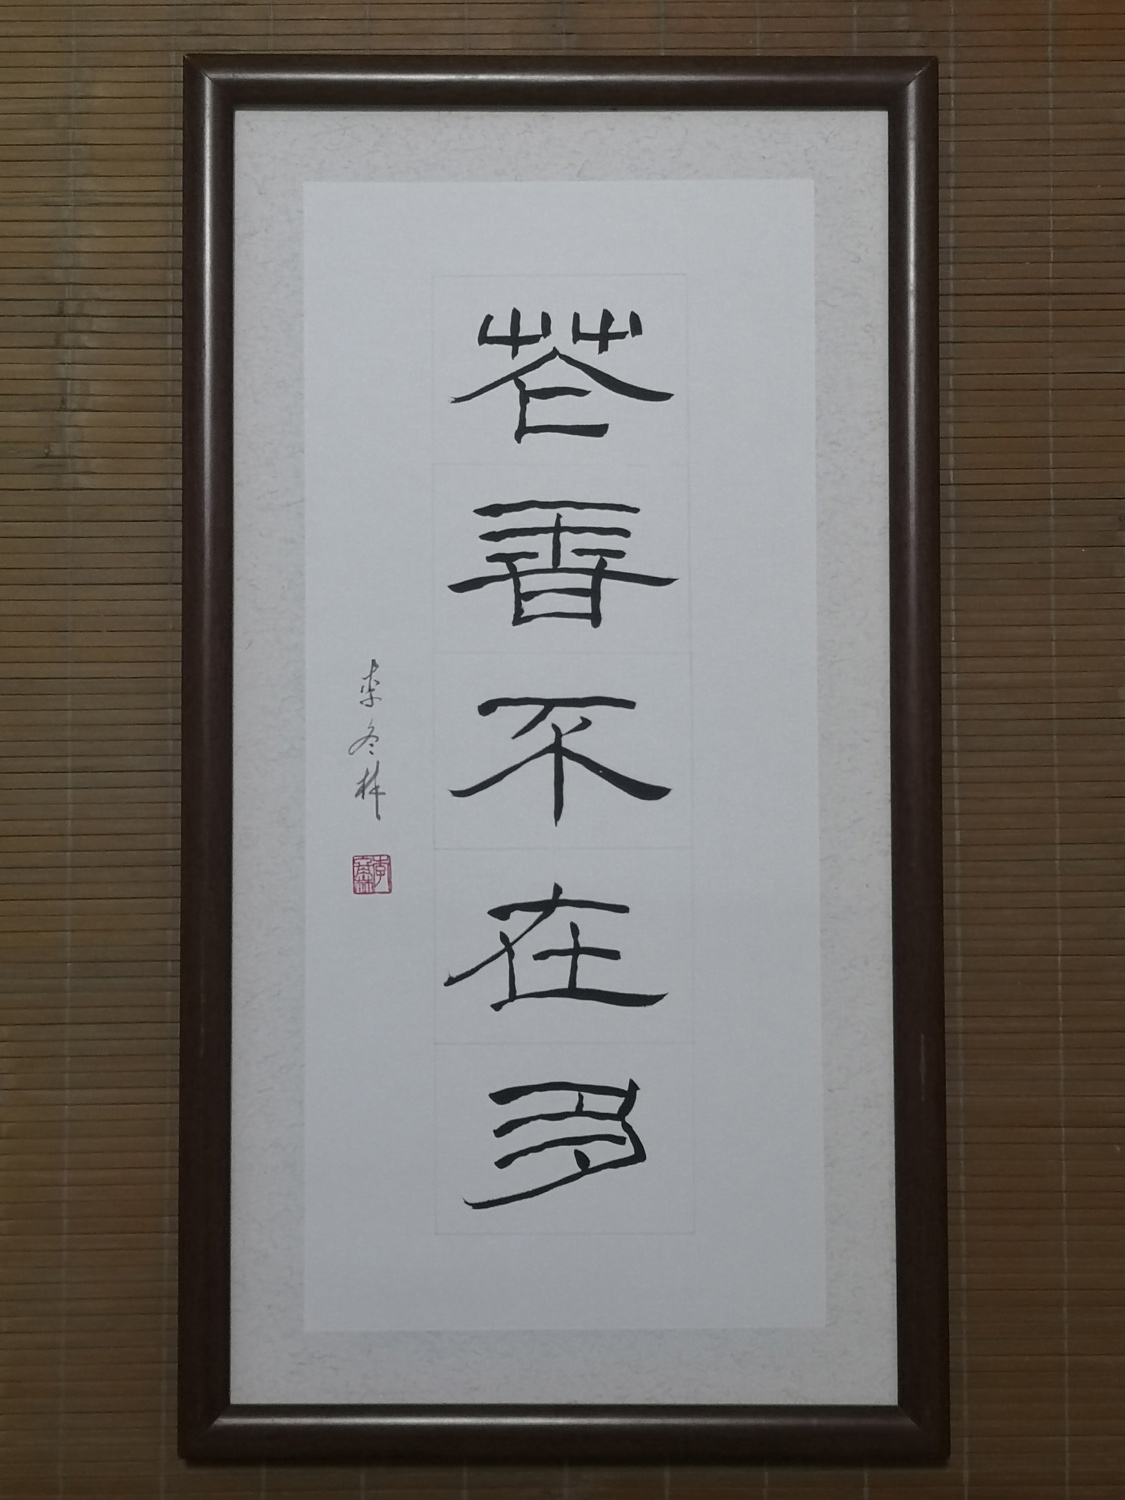 花香不在多
李冬林